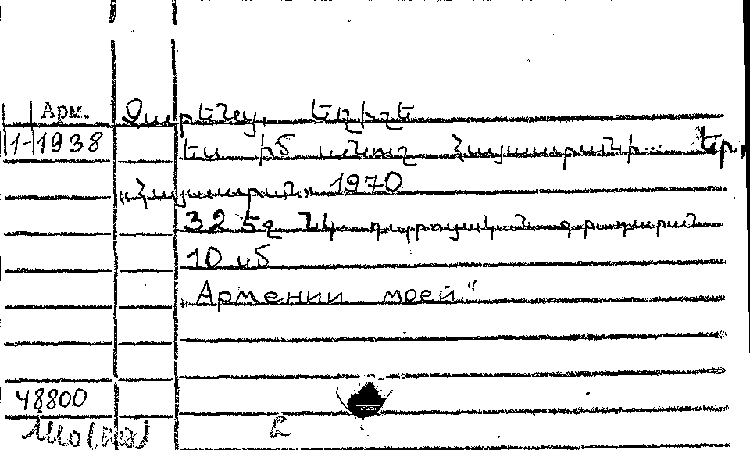 Арм. Չարենց, Եղիշե
1-1938 Ես իմ անուշ Հայաստանի... Եր.,
«Հայաստան» 1970
32 էջ նկ. դպրոցական գրադարան
10 կ
„Армении моей“
48800